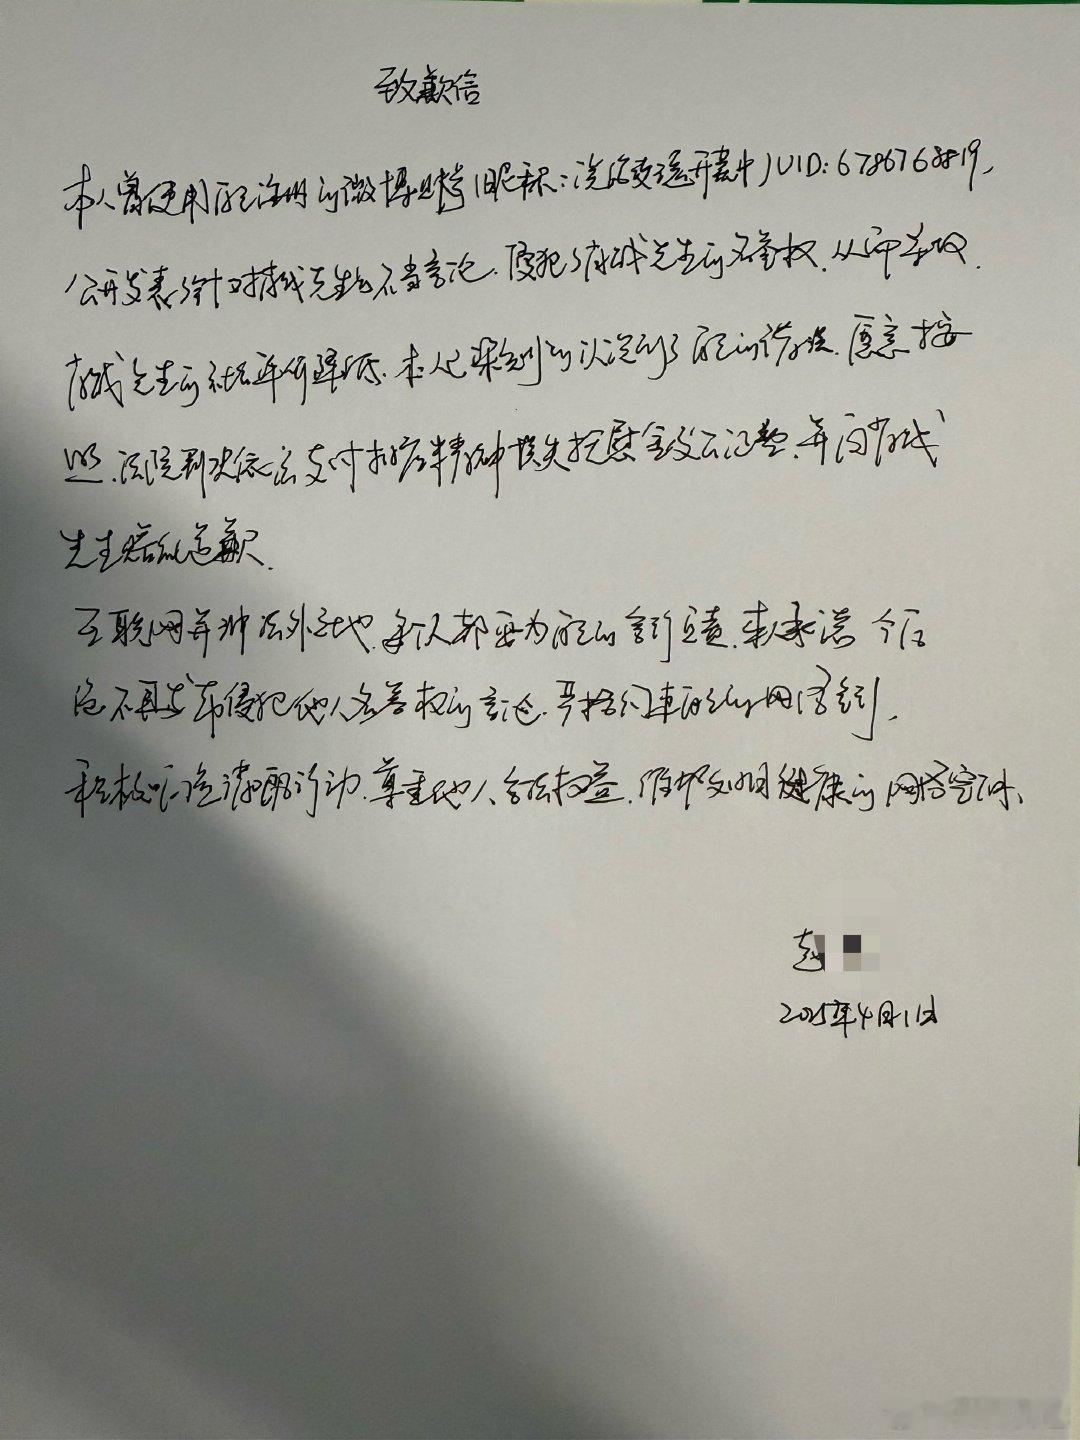 致歉信
本人曾使用自己注册的微博账号(昵称:洗的变选开卖中)UID:6786768819,
公开发表了针对诚先生的不当言论,侵犯了诚先生的名誉权,从而导致
诚先生的社会评价降低.本人已深刻的认识到了自己的错误.愿意按
照法院判决依法支付相应精神损失抚慰金及公证费,并向诚
先生赔礼道歉.
互联网并非法外之地,每个人都要为自己的言行负责.本人承诺今后
绝不再发布侵犯他人名誉权的言论.严格约束自己的网络言行,
积极响应清朗行动,尊重他人合法权益,维护文明健康的网络空间.
赵
2025年4月1日